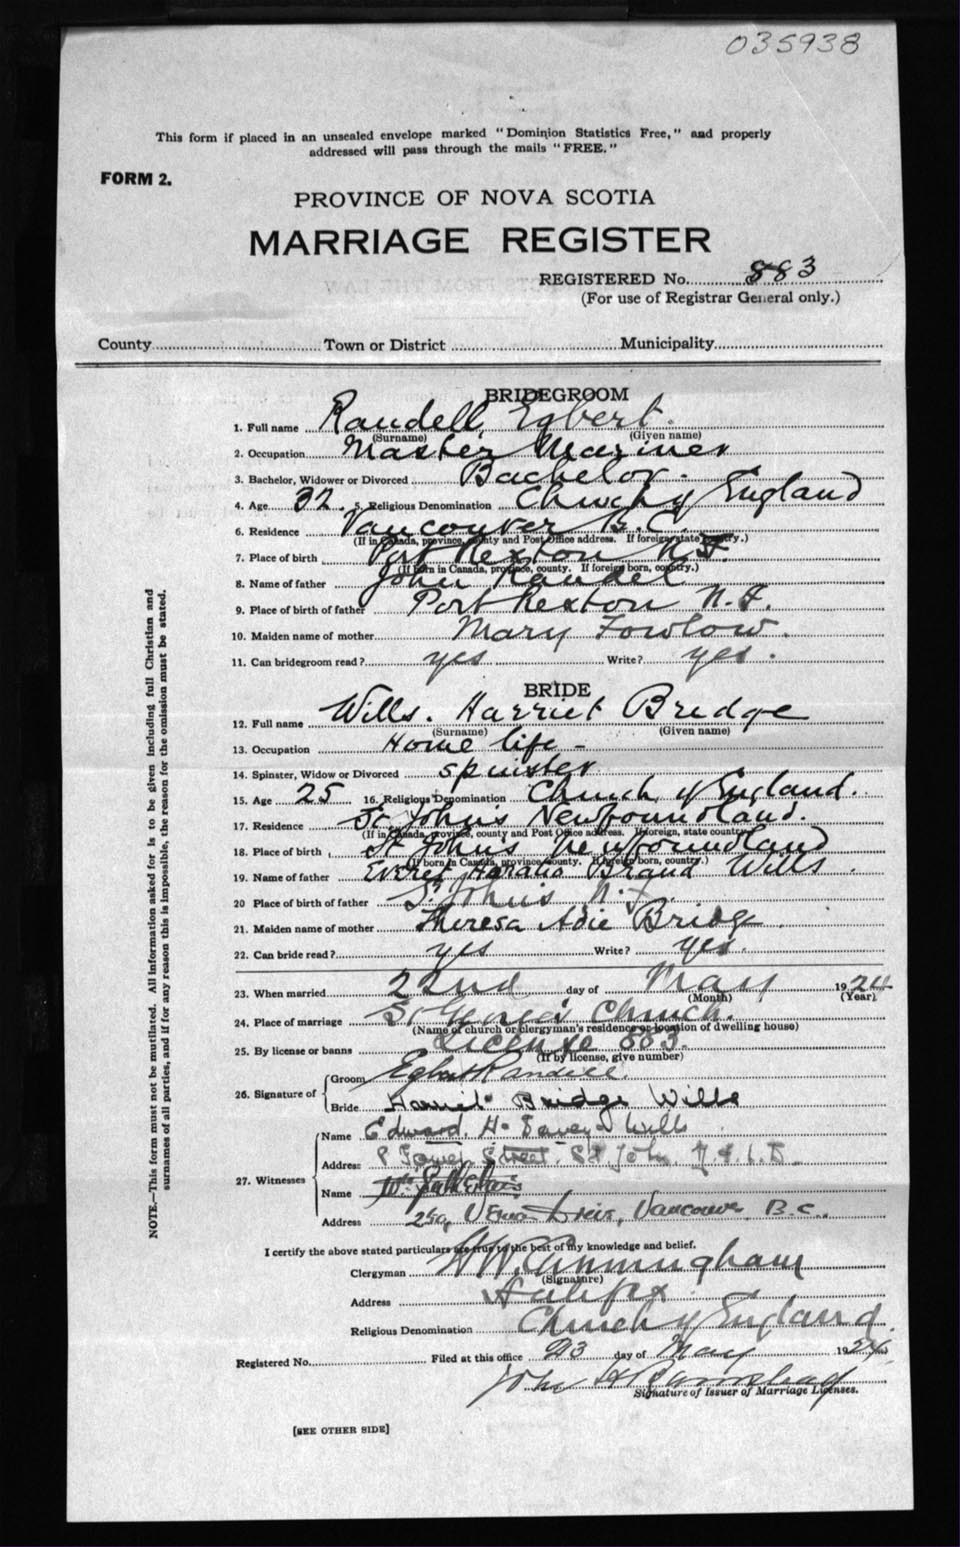 035938
This form if placed in an unsealed envelope marked "Dominion Statistics Free," and properly
addressed will pass through the mails "FREE."
FORM 2.
PROVINCE OF NOVA SCOTIA
MARRIAGE REGISTER
REGISTERED No. 883
(For use of Registrar General only.)
County Town or District Municipality
BRIDEGROOM
1. Full name Randell, Egbert.
(Surname) (Given name)
2. Occupation Master Mariner
3. Bachelor, Widower or Divorced Bachelor.
4. Age 32. 5. Religious Denomination Church of England
6. Residence Vancouver B.C.
(If in Canada, province, county and Post Office address. If foreign, state country.)
7. Place of birth Port Rexton N.F.
(If born in Canada, province, county. If foreign born, country.)
8. Name of father John Randel
9. Place of birth of father Port Rexton N.F.
10. Maiden name of mother Mary Fowlow.
11. Can bridegroom read? yes Write? yes.
BRIDE
12. Full name Wills. Harriet Bridge
(Surname) (Given name)
13. Occupation Home life -
14. Spinster, Widow or Divorced spinster
15. Age 25 16. Religious Denomination Church of England.
17. Residence St. John's Newfoundland.
(If in Canada, province, county and Post Office address. If foreign, state country.)
18. Place of birth St John's Newfoundland
(If born in Canada, province, county. If foreign born, country.)
19. Name of father Everet Horatio Brand Wills.
20 Place of birth of father St. John's N.F.
21. Maiden name of mother Theresa Adie Bridge.
22. Can bride read? yes Write? yes.
23. When married 22nd day of May 1924
(Month) (Year)
24. Place of marriage St George's Church.
(Name of church or clergyman's residence or location of dwelling house)
25. By license or banns License 883.
(If by license, give number)
26. Signature of Groom Egbert Randell.
Bride Harriet Bridge Wills
27. Witnesses Name Edward. H. Wills
Address Street. St John. N.F.L.D.
Name
Address Drive, Vancouver, B.C.
I certify the above stated particulars are true to the best of my knowledge and belief.
Clergyman H.W. Cunningham
(Signature)
Address Halifax
Religious Denomination Church of England.
Registered No. Filed at this office 23 day of May 1924
John H
Signature of Issuer of Marriage Licenses.
[SEE OTHER SIDE]
NOTE.—This form must not be mutilated. All information asked for is to be given including full Christian and
surnames of all parties, and if for any reason this is impossible, the reason for the omission must be stated.